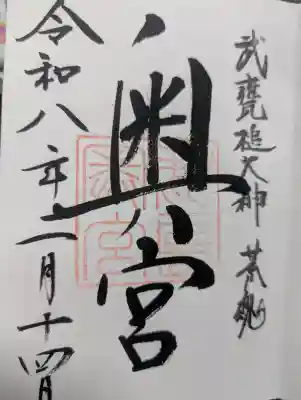 武甕槌大神 荒魂
奥宮
令和八年二月十四日